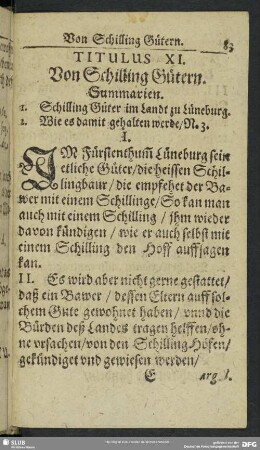 Von Schilling Gütern. 83
TITULUS XI.
Von Schilling Gütern.
Summarien.
1. Schilling Güter im Landt zu Lüneburg.
2. Wie es damit gehalten werde/N. 3.
I.
IM Fürstenthum̃ Lüneburg sein
etliche Güter/die heissen Schil-
lingbaur/ die empfehet der Ba-
wer mit einem Schillinge/So kan man
auch mit einem Schilling / jhm wieder
davon kündigen / wie er auch selbst mit
einem Schilling den Hoff auffsagen
kan.
II. Es wird aber nicht gerne gestattet/
daß ein Bawer / dessen Eltern auff sol-
chem Gute gewohnet haben/ vnnd die
Bürden deß Landes tragen helffen/oh-
ne vrsachen/von den Schilling-Höfen/
gekündiget vnd gewiesen werden/
E arg. l.
SLUB
DFG